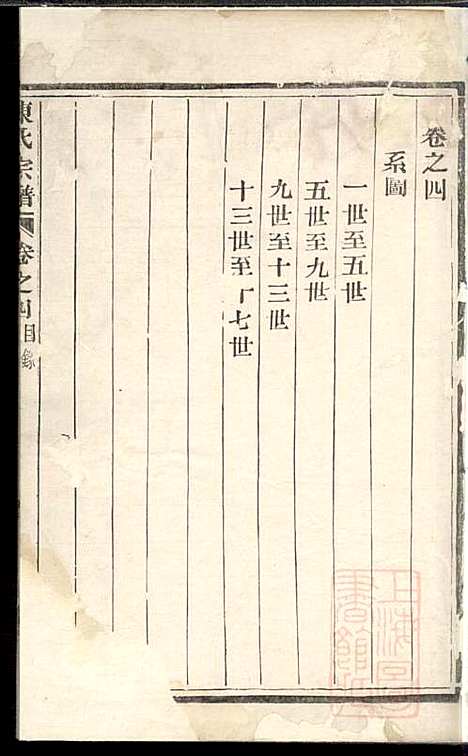 卷之四
系圖
一世至五世
五世至九世
九世至十三世
十三世至十七世
陳氏宗譜 卷之四 目錄
上海圖書館藏